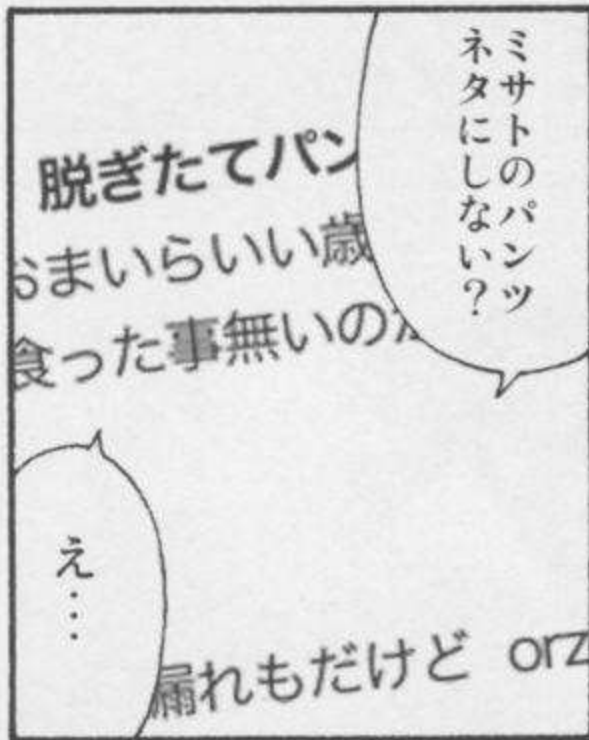 ミサトのパンツ
ネタにしない？
脱ぎたてパン
おまいらいい歳
食った事無いのか
え…
漏れもだけど orz